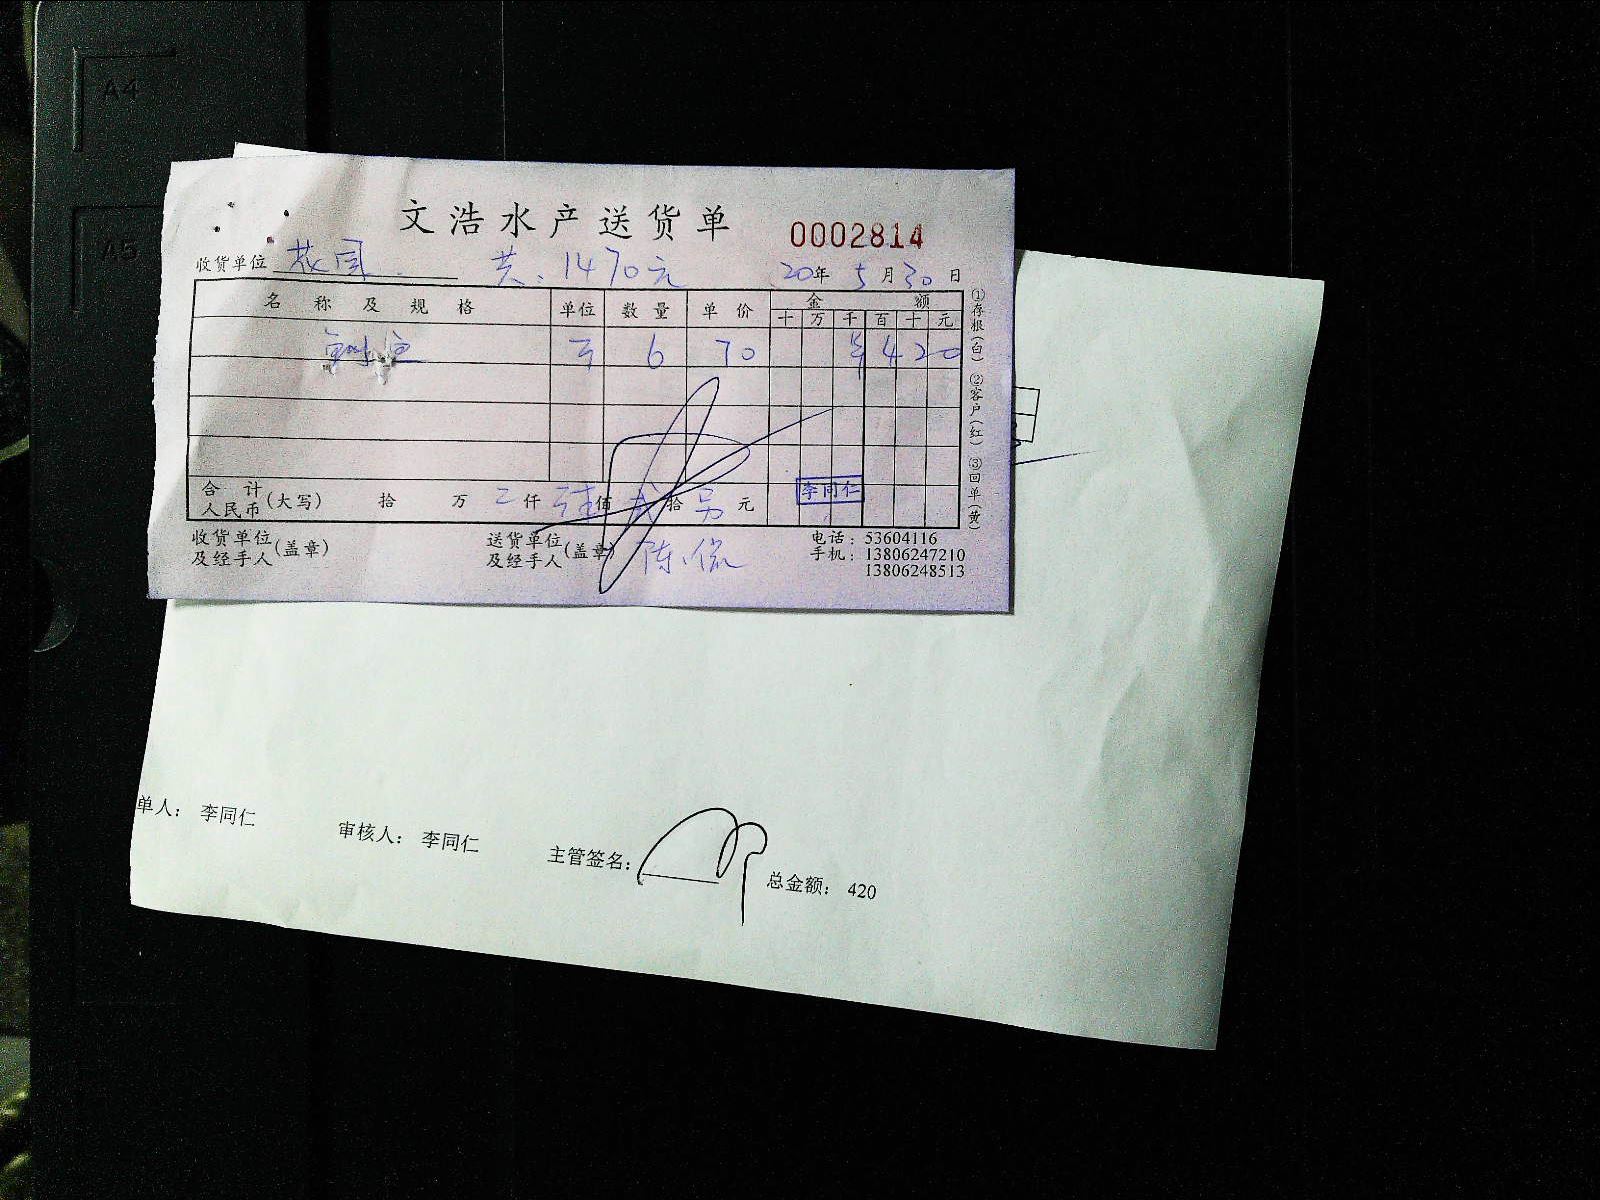 A4
A5
文浩水产送货单
0002814
收货单位 共、1470元 20年5月30日
名称及规格 单位 数量 单价 金额
十 万 千 百 十 元
6 70 ¥ 4 2 0
合计人民币(大写) 拾 万 仟 佰 拾 元
李同仁
收货单位及经手人(盖章) 送货单位及经手人(盖章) 陈
电话：53604116
手机：13806247210
13806248513
①存根(白) ②客户(红) ③回单(黄)
单人： 李同仁 审核人： 李同仁 主管签名： 总金额： 420